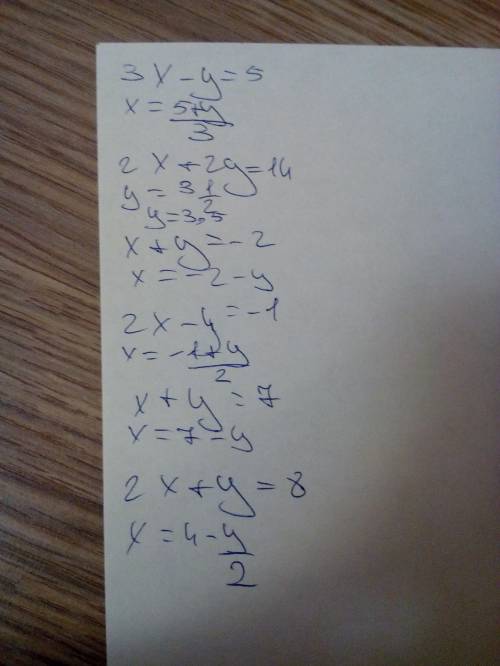 3x - y = 5
x = (5+y)/3
2x + 2y = 14
y = 3 1/2
y = 3,5
x + y = -2
x = -2 - y
2x - y = -1
x = (-1+y)/2
x + y = 7
x = 7 - y
2x + y = 8
x = 4 - y/2